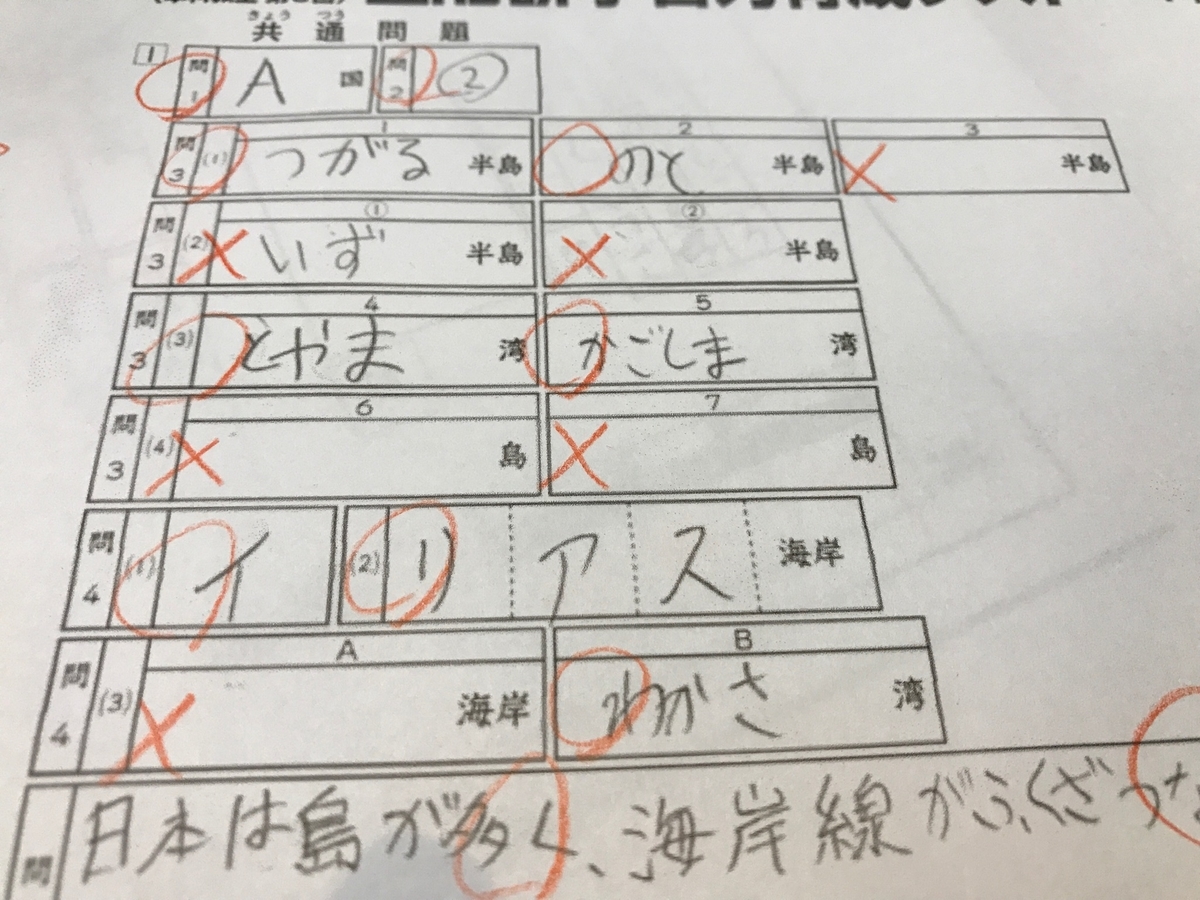 きょう つう
共通問題
1 問1 A 国 問2 ②
1 2 3
問3 (1) つがる 半島 のと 半島 半島
① ②
問3 (2) いず 半島 半島
4 5
問3 (3) とやま 湾 かごしま 湾
6 7
問3 (4) 島 島
問4 (1) イ (2) リアス 海岸
A B
問4 (3) 海岸 わかさ 湾
問 日本は島が多く、海岸線がふくざつな